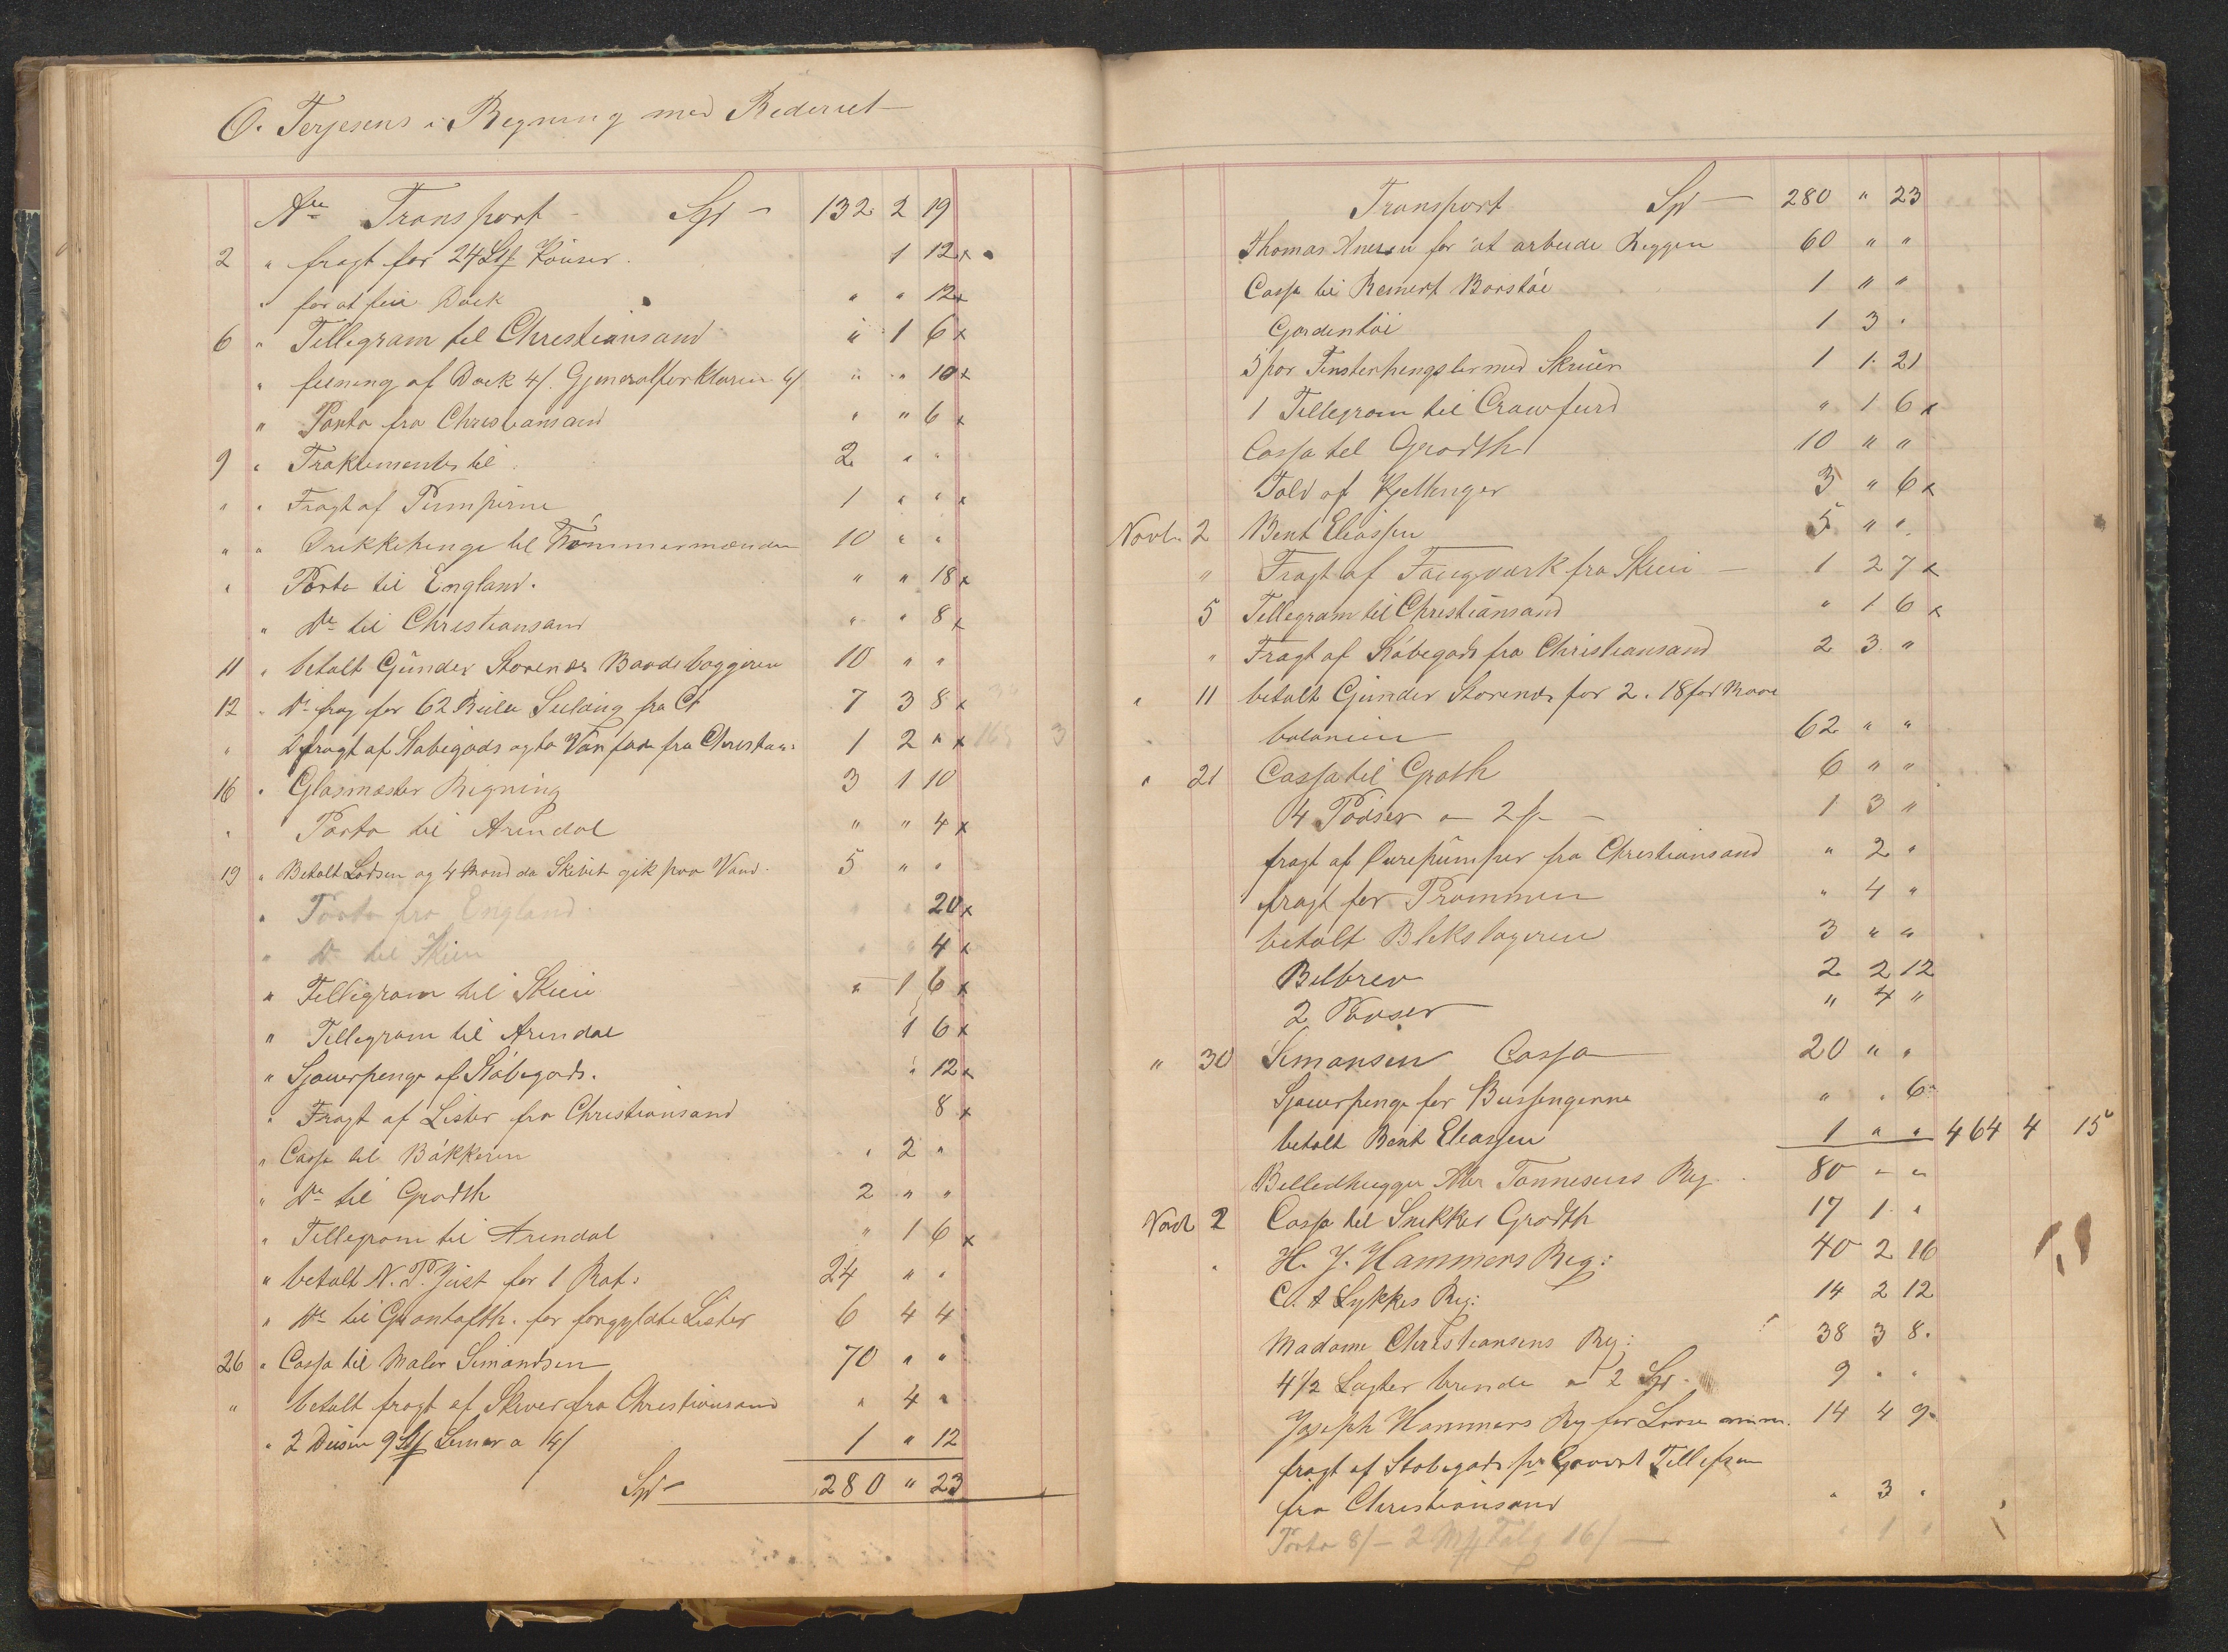 O. Terjesens i Regning med Rederiet
Transport Spd 132 2 19
2 " fragt for 24 Kouser 1 12 x
" for at feie Dæk " " 12 x
6 " Tellegram til Christiansand " 1 6 x
" feiening af Dæk 4/. 6/ " " 10 x
" Porto fra Christiansand " " 6 x
9 " Traktemente til 2 " "
" " Fragt af Pumperne 1 " " x
" " Drikkepenge til Tømmermænden 10 " "
" Porto til England. " " 18 x
" Do til Christiansand " " 8 x
11 " betalt Gunder Storenes Baadebyggeren 10 " "
12 " Do frag for 62 fra Ch 7 3 8 x
" fragt af Støbegods og to fra Christian: 1 2 " x
16 " Glasmester Regning 3 1 10
" Porto til Arendal " " 4 x
19 " Betalt Lodsen og 4 Mand da Skibet gik paa Vand. 5 " "
" Porto fra England " " 20 x
" Do til Skien " " 4 x
" Tellegram til Skien " 1 6 x
" Tellegram til Arendal 1 6 x
" Sjauerpenge af Støbegods. " 12 x
" Fragt af Lister fra Christiansand 8 x
" Cassa til Bakkeren " 2 "
" Do til Grodth 2 " "
" Tellegram til Arendal " 1 6 x
" betalt N. P. Just for 1 Rat: 24 " "
" Do til for forgyldte Lister 6 4 4
26 " Cassa til Maler Simondsen 70 " "
" betalt fragt af Skiver fra Christiansand " 4 "
" 2 Dusin 9 a 14/ 1 " 12
Spd 280 " 23
Transport Spd 280 " 23
Thomas for at arbeide Reggen 60 " "
Cassa til Reinert Borstøe 1 " "
Gardentøi 1 3 "
5 par med Skruer 1 1 21
1 Tellegram til Crawfurd " 1 6 x
Cassa til Grodth 10 " "
Told af Kjettinger 3 " 6 x
Novbr 2 Bent Eliassen 5 " "
" Fragt af fra Skien 1 2 7 x
5 Tellegram til Christiansand " 1 6 x
" Fragt af Støbegods fra Christiansand 2 3 "
" 11 betalt Gunder Storenes for 2. 18 fod
62 " "
" 21 Cassa til Groth 6 " "
4 a 2 1 3 "
fragt af fra Christiansand " 2 "
fragt for Prammen " 4 "
betalt Blekslageren 3 " "
Bilbrev 2 2 12
2 " 4 "
" 30 Simonsen Cassa 20 " "
Sjauerpenge for " " 6
betalt Bent Eliassen 1 " " 464 4 15
Billedhugger Tønnesens Reg. 80 " "
Novbr 2 Cassa til Snikker Grodth 17 1 "
" H. J. Hammers Reg: 40 2 16
C. A Lykkes Reg: 14 2 12
Madame Christiansens Reg: 38 3 8
4 1/2 Lagter brende a 2 Spd. 9 " "
Joseph Hammers Reg for 14 4 9
fragt af Støbegods pr Tellefsen
fra Christiansand " 3 "
Porto 8/ - 2 Talg 16/ " 1 "